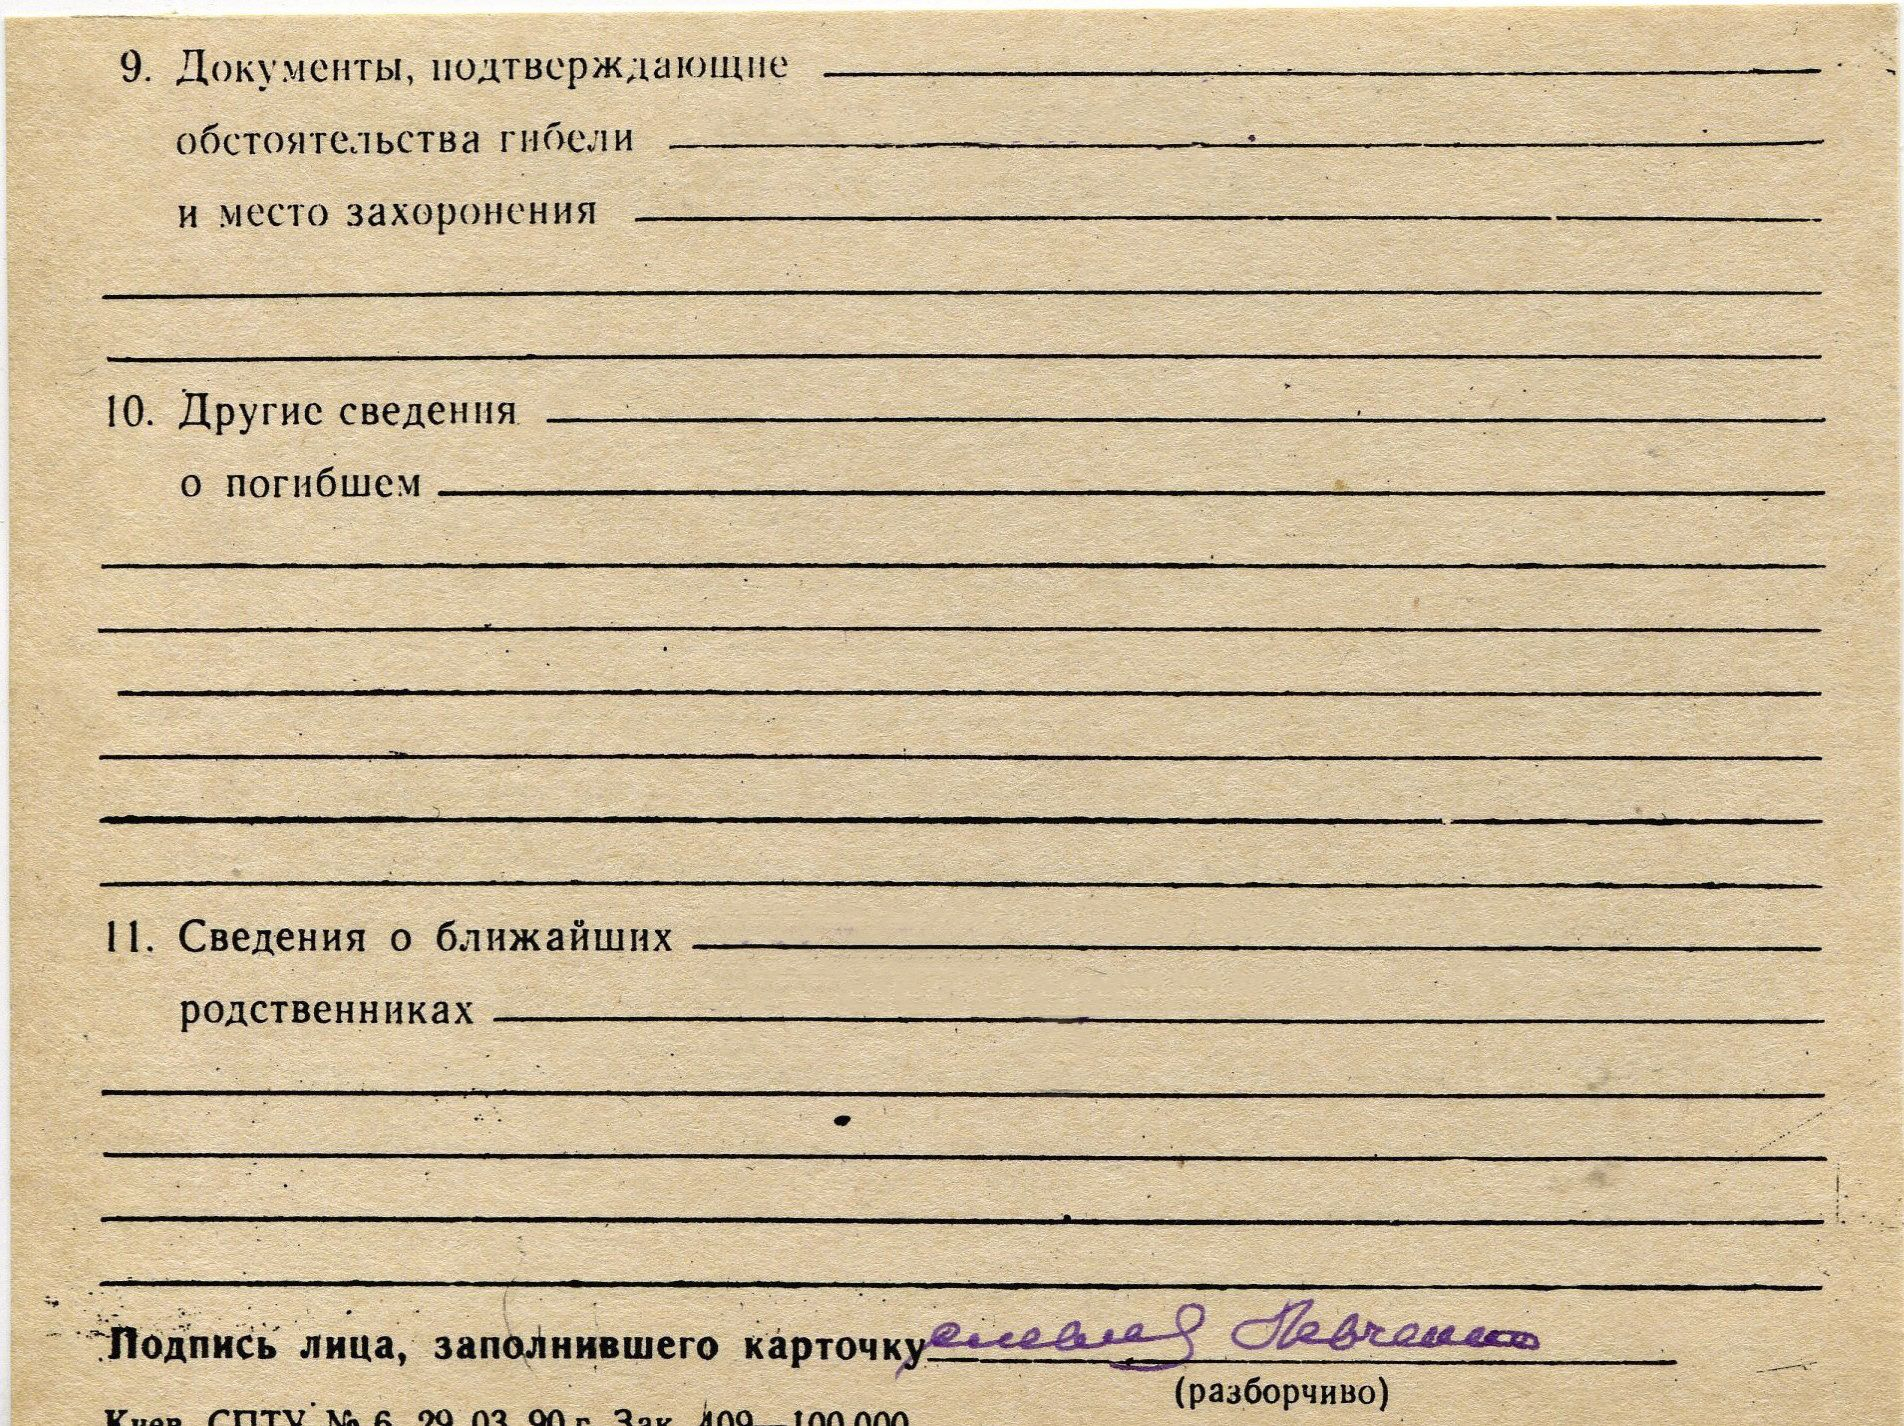 9. Документы, подтверждающие
обстоятельства гибели
и место захоронения
10. Другие сведения
о погибшем
11. Сведения о ближайших
родственниках
Подпись лица, заполнившего карточку
(разборчиво)
Киев. СПТУ № 6. 29.03.90 г. Зак. 409—100.000